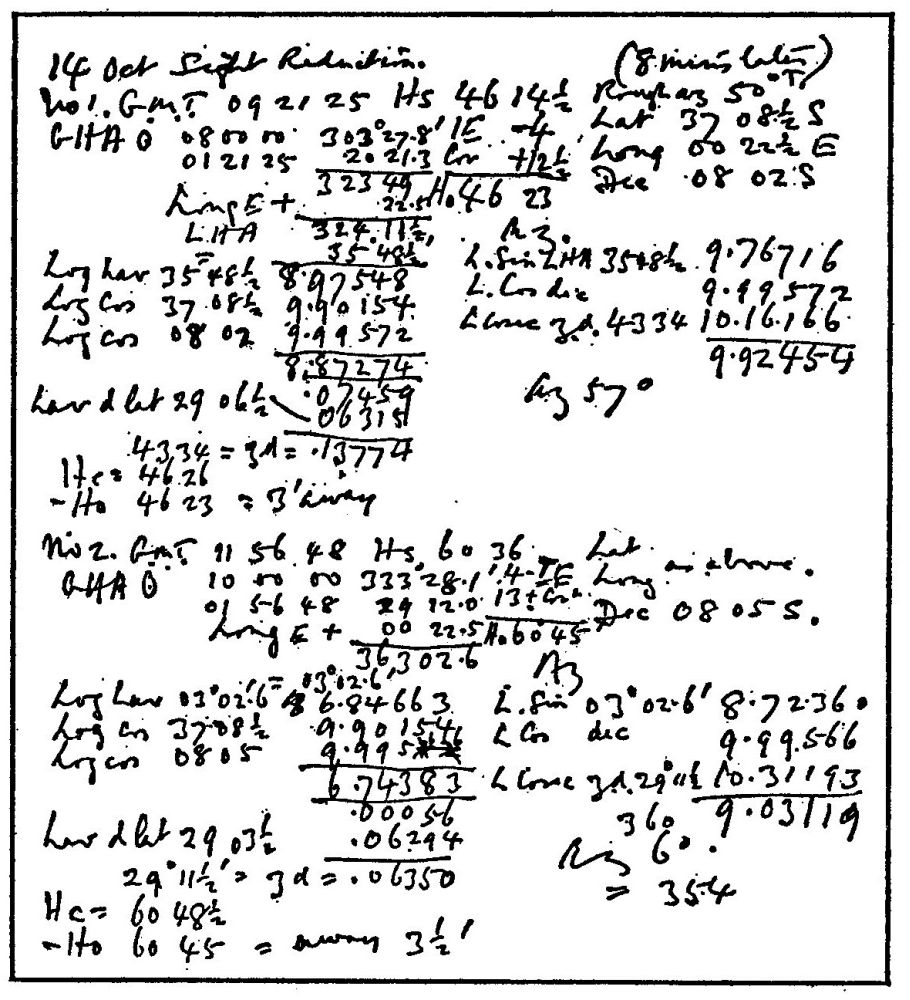 14 Oct Sight Reduction. (8 mins later)
No1. G.M.T 09 21 25 Hs 46 14½ Rough az 50°T,
GHA ʘ 08 00 00 303°27.8' IE -4 Lat 37 08½ S
01 21 25 20 21.3 Cor +12½ Long 00 22½ E
323 49 Ho 46 23 Dec 08 02 S
Long E + 22.5
LHA 324.11½ Az.
= 35 48½ L. Sin LHA 35 48½ 9.76716
Log hav 35 48½ 8.97548 L. Cos dec 9.99572
Log Cos 37 08½ 9.90154 L Cosec zd. 43 34 10.16166
Log cos 08 02 9.99572 9.92454
8.87274
.07459 Az 57°
hav d lat 29 06½ .06315
43 34 = zd = .13774
Hc = 46 26
-Ho 46 23 = 3' away
No 2. G.M.T 11 56 48 Hs 60 36 Lat
GHA ʘ 10 00 00 333°28.1' 4- IE Long as above.
01 56 48 29 12.0 13+ Corn Dec 08 05 S.
Long E + 00 22.5 Ho 60 45
363 02.6 Az
= 03°02.6'
Log hav 03°02.6' 6.84663 L. Sin 03°02.6' 8.72360
Log cos 37 08½ 9.90154 L Cos dec 9.99566
Log cos 08 05 9.995 L Cosec zd. 29°11½ 10.31193
6.74383 9.03119
.00056 360
hav d lat 29 03½ .06294 Az 6°.
29°11½' = zd = .06350 = 354
Hc = 60 48½
-Ho 60 45 = away 3½'